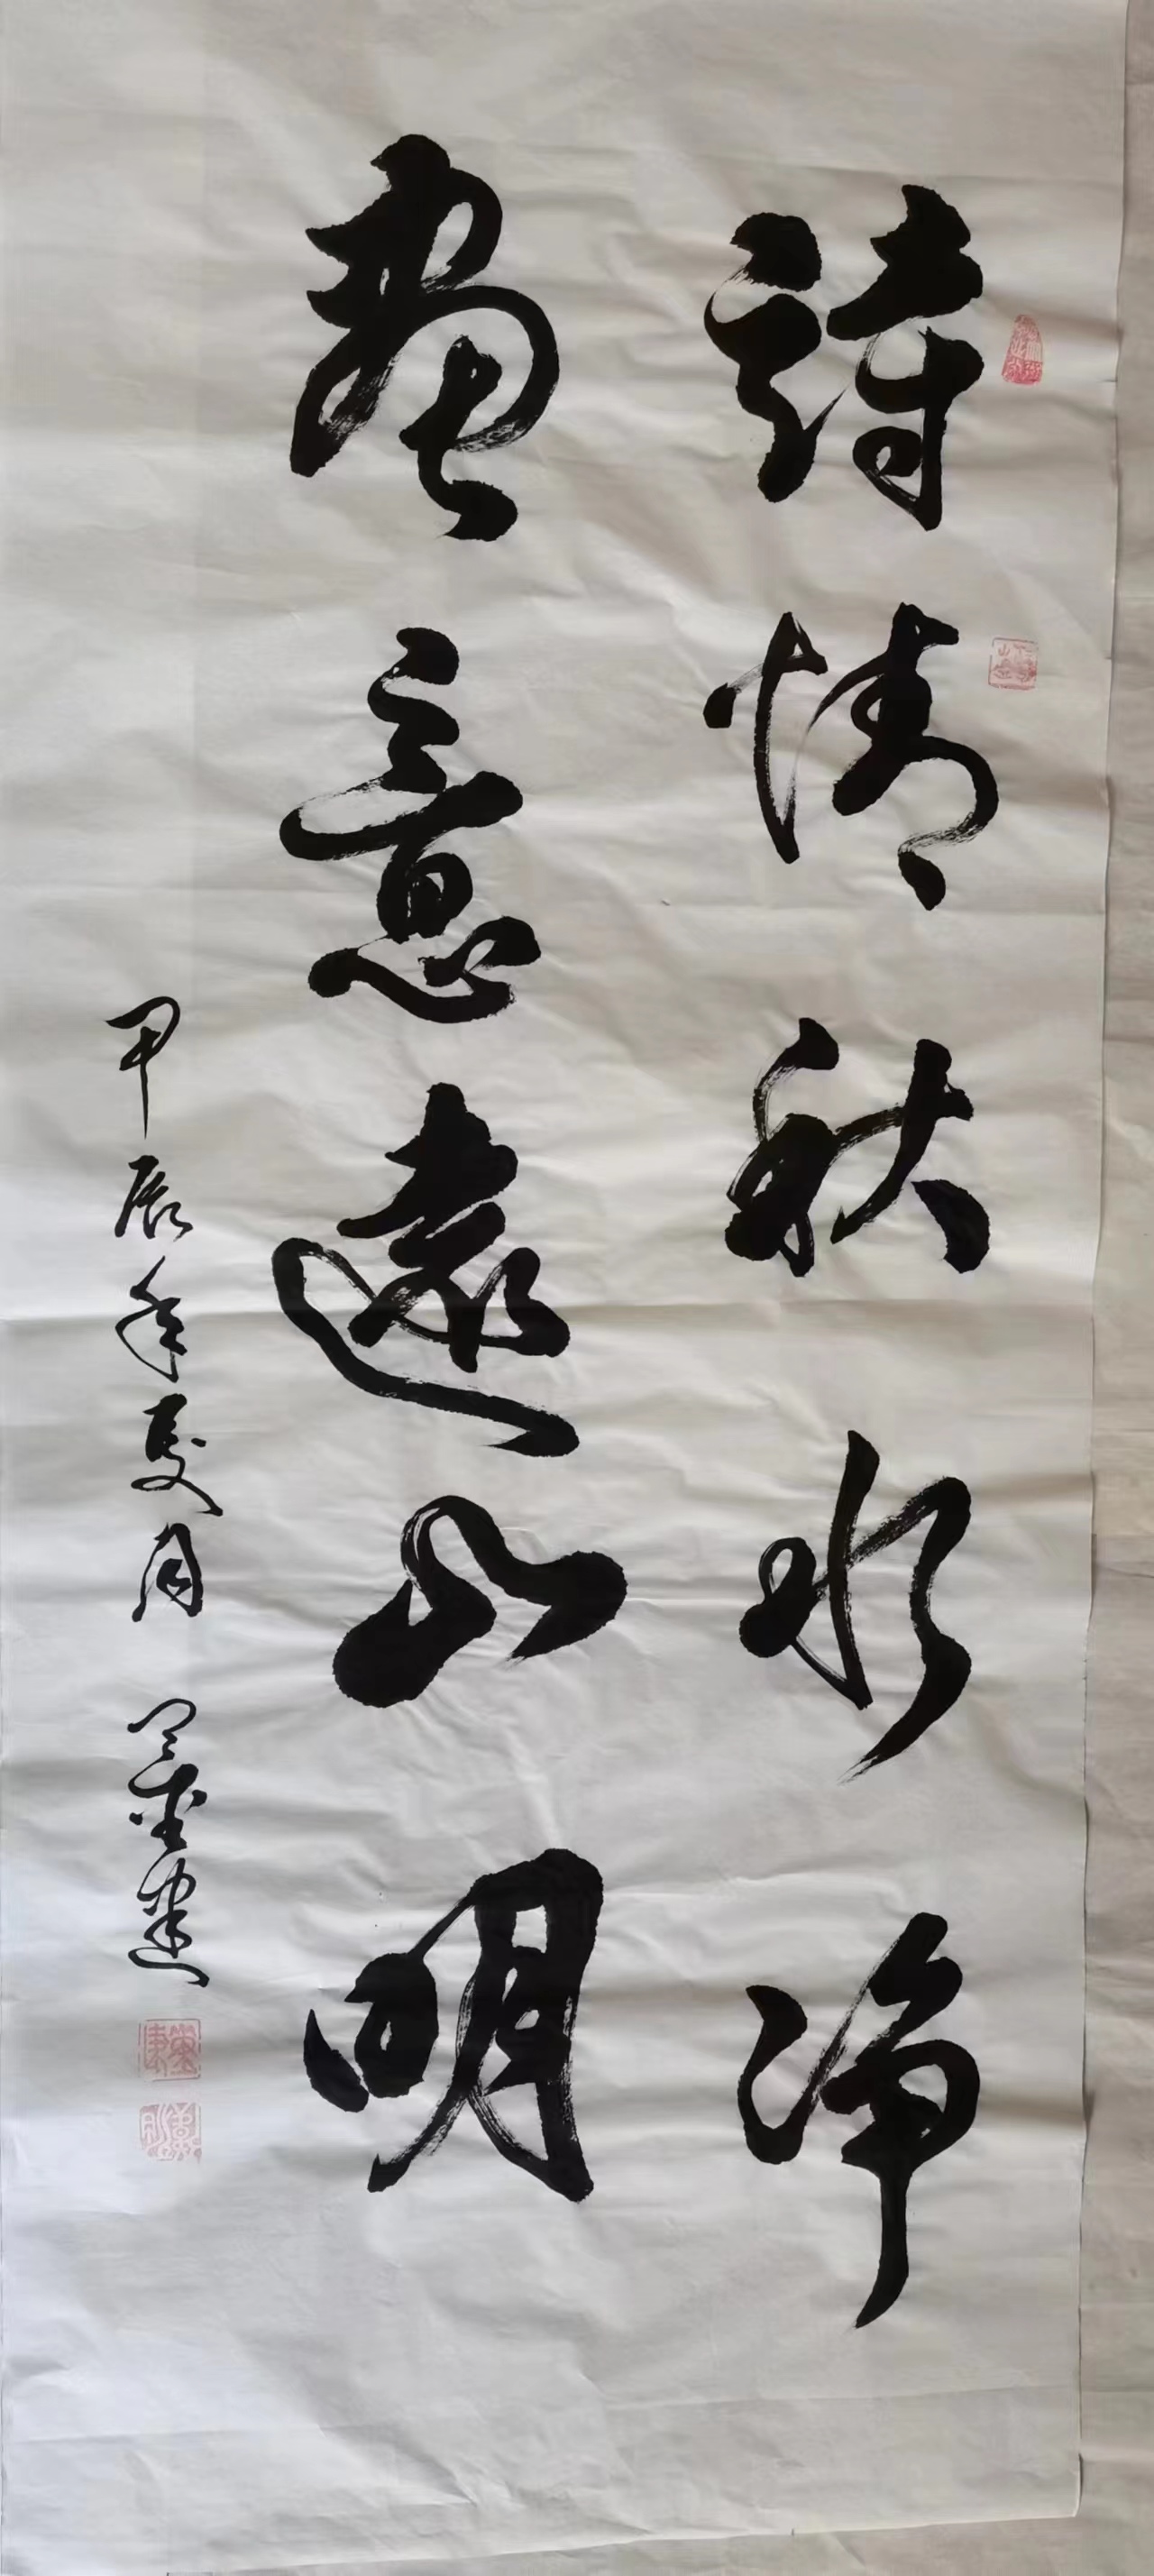 詩情秋水淨
畫意遠山明
甲辰年夏月